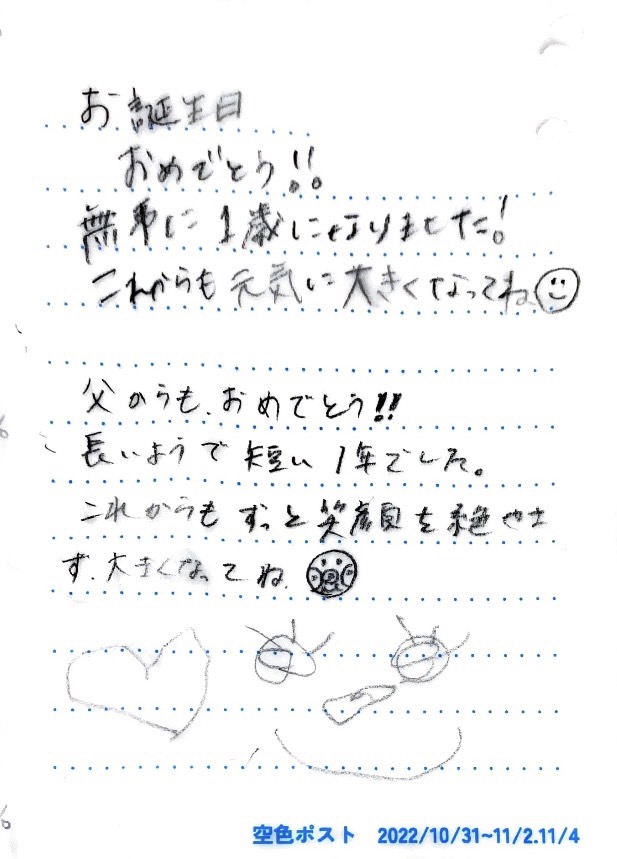 お誕生日
おめでとう!!
無事に1歳になりました!
これからも元気に大きくなってね
父からも、おめでとう!!
長いようで短い1年でした。
これからもずっと笑顔を絶やさ
ず、大きくなってね
空色ポスト 2022/10/31~11/2.11/4